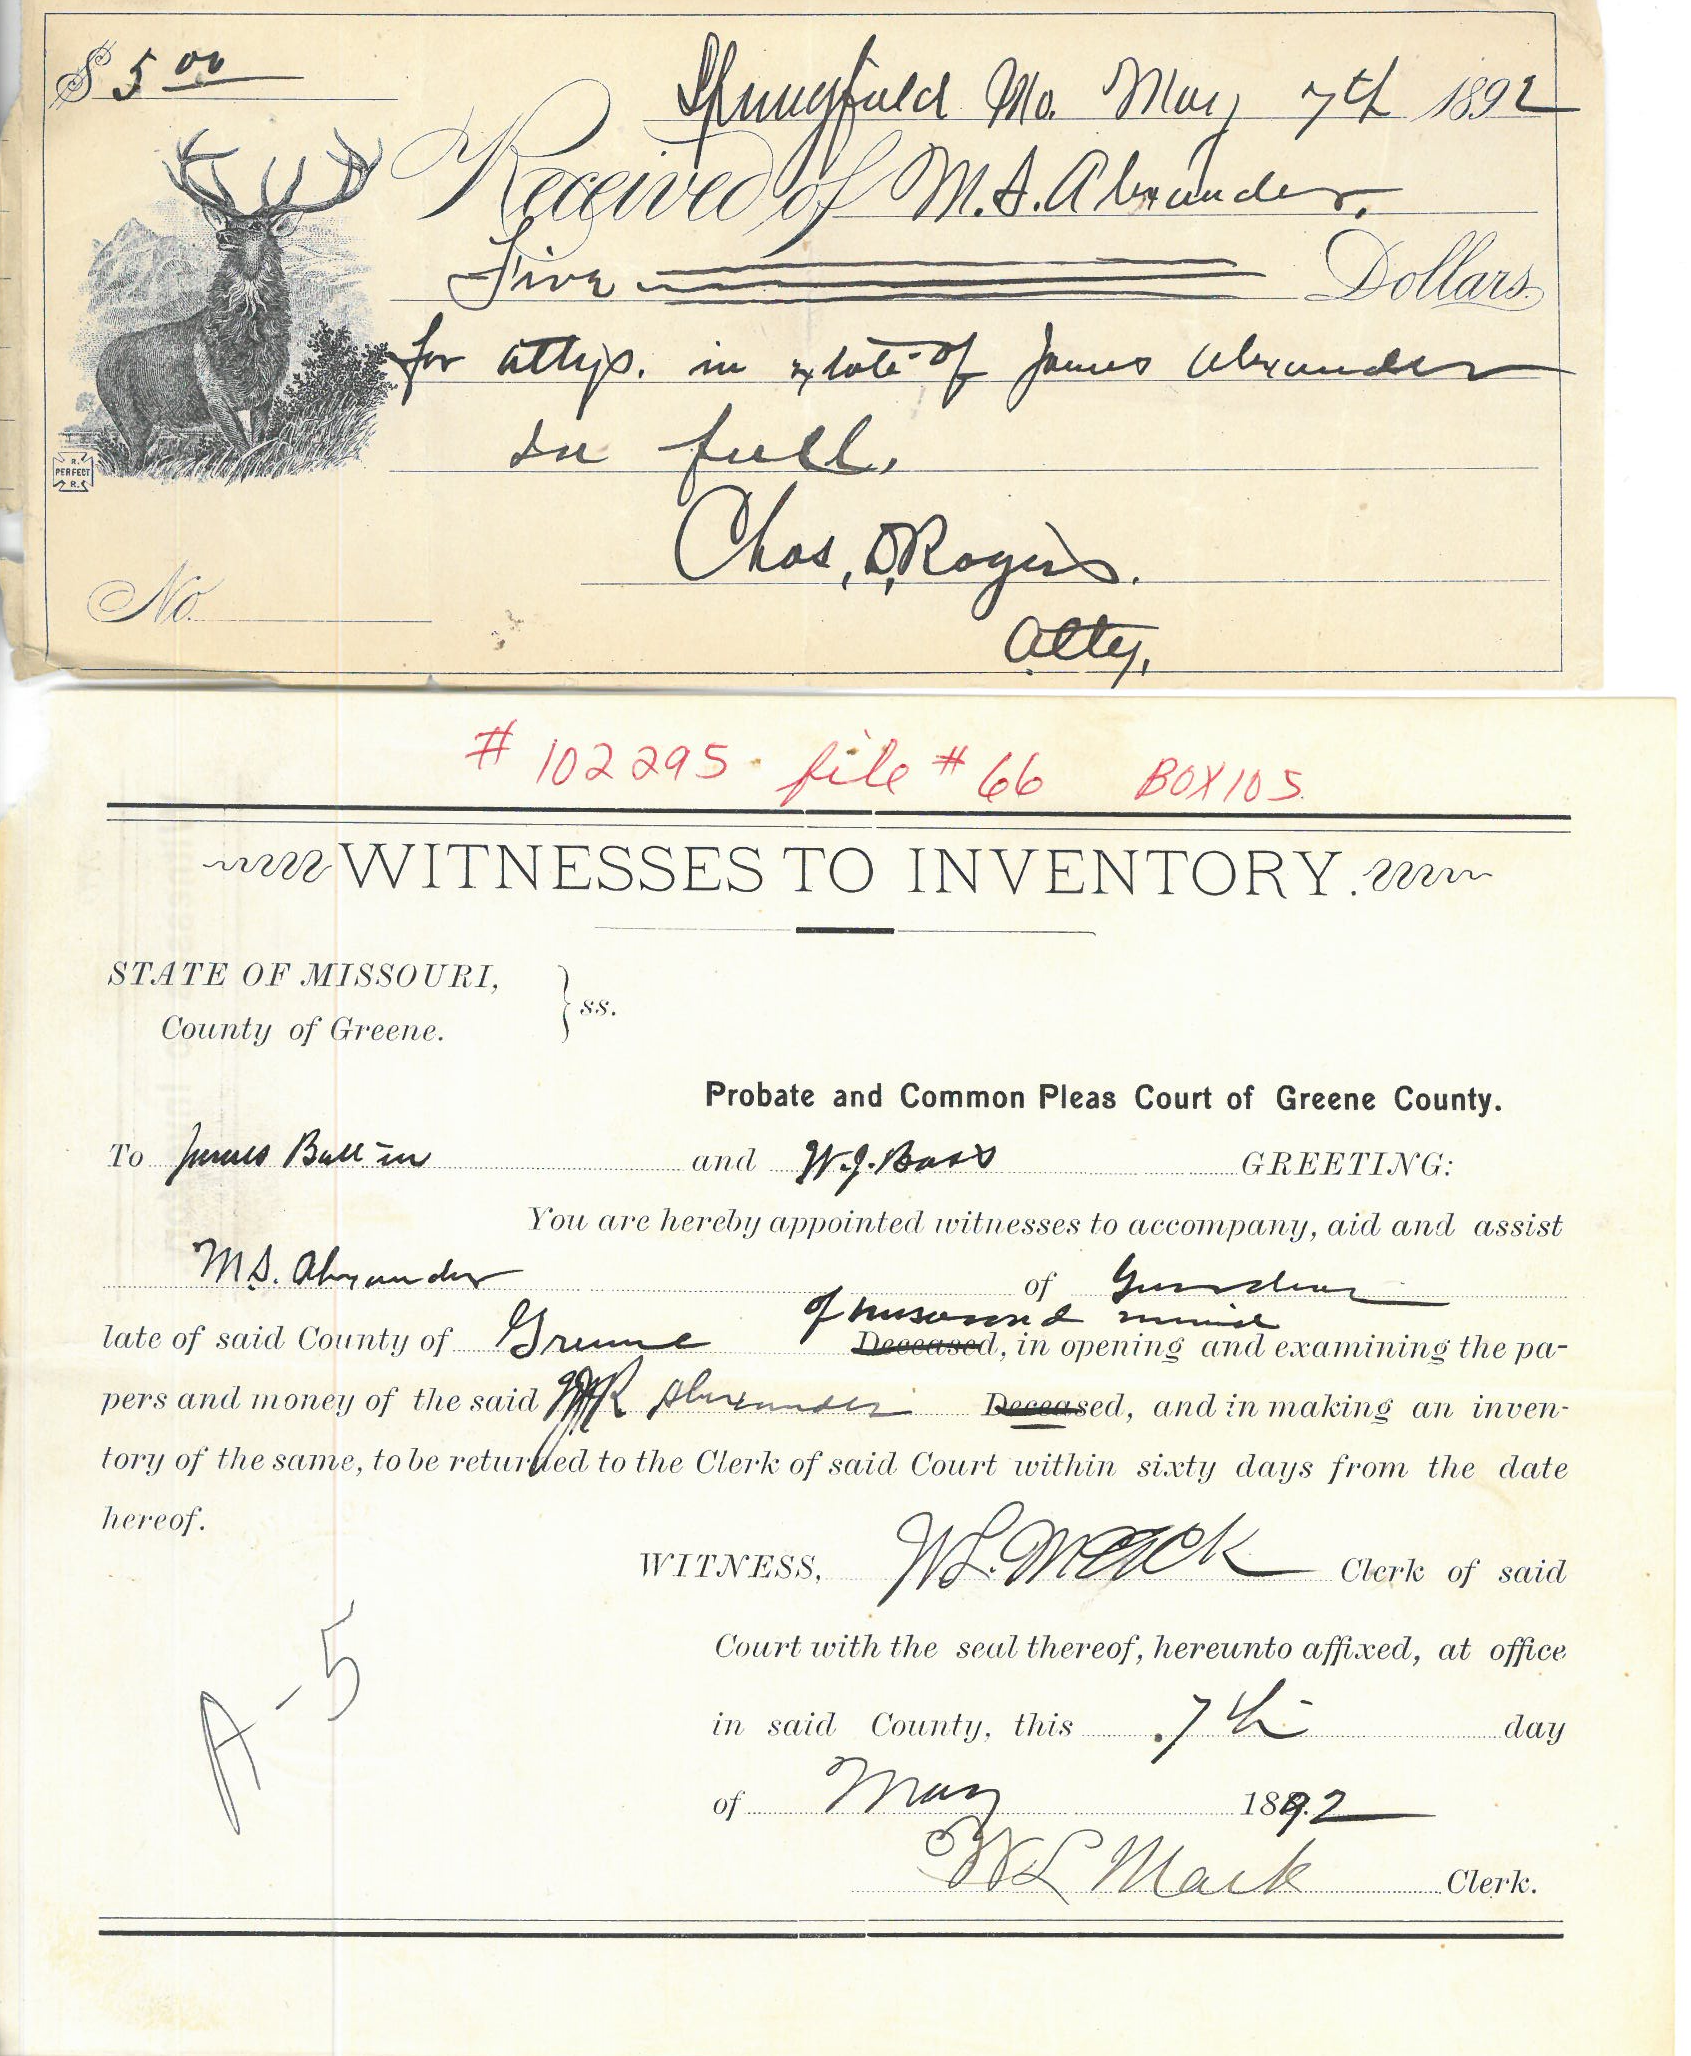 $ 5.00
Springfield Mo. May 7th 1892
Received of M.S. Alexander.
Five Dollars
for attys. in estate of James Alexander
in full.
R. PERFECT R.
Chas. D. Rogers.
No.
Atty.
# 102295 file # 66 BOX 105
WITNESSES TO INVENTORY.
STATE OF MISSOURI,
County of Greene. } ss.
Probate and Common Pleas Court of Greene County.
To James and W.J. Bass GREETING:
You are hereby appointed witnesses to accompany, aid and assist
M S. Alexander of Guardian
of unsound mind
late of said County of Greene Deceased, in opening and examining the pa-
pers and money of the said Alexander Deceased, and in making an inven-
tory of the same, to be returned to the Clerk of said Court within sixty days from the date
hereof.
WITNESS, W L. Mack Clerk of said
Court with the seal thereof, hereunto affixed, at office
in said County, this 7th day
of May 1892
W L Mack Clerk.
A-5